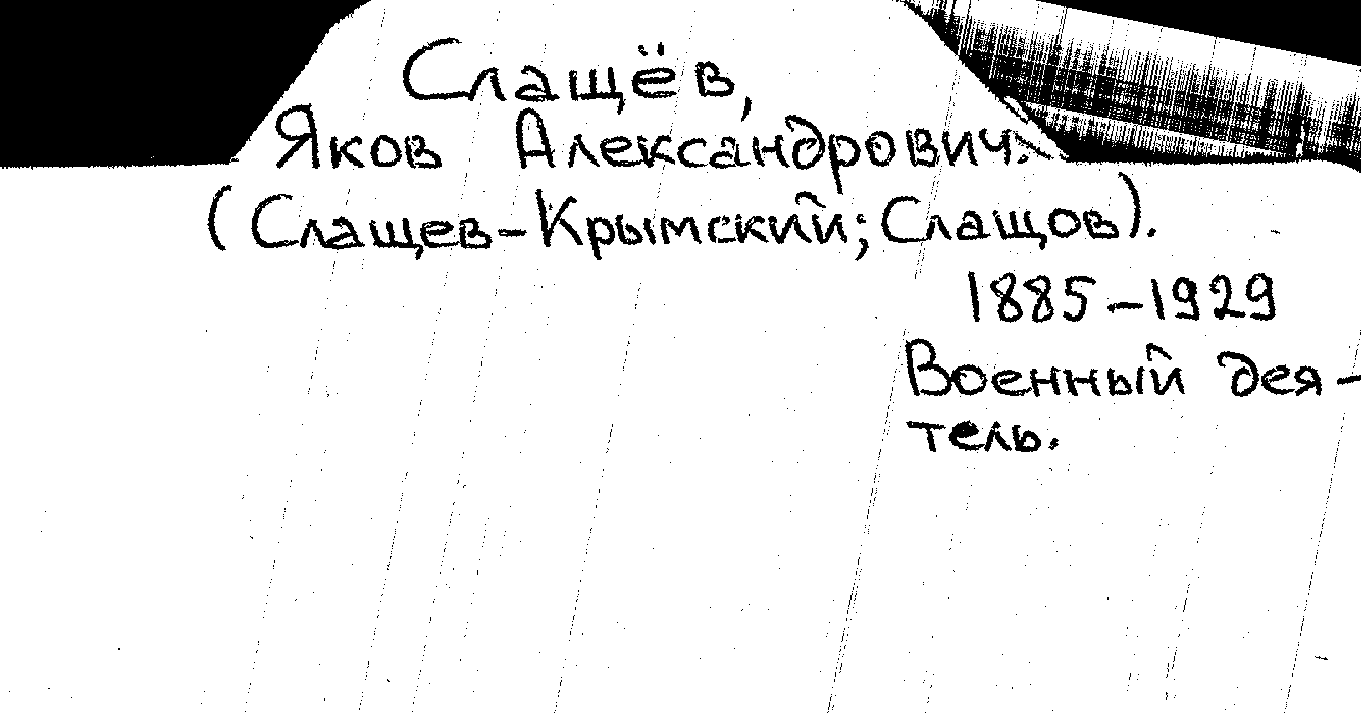 Слащёв,
Яков Александрович.
(Слащев-Крымский; Слащов).
1885-1929
Военный дея-
тель.